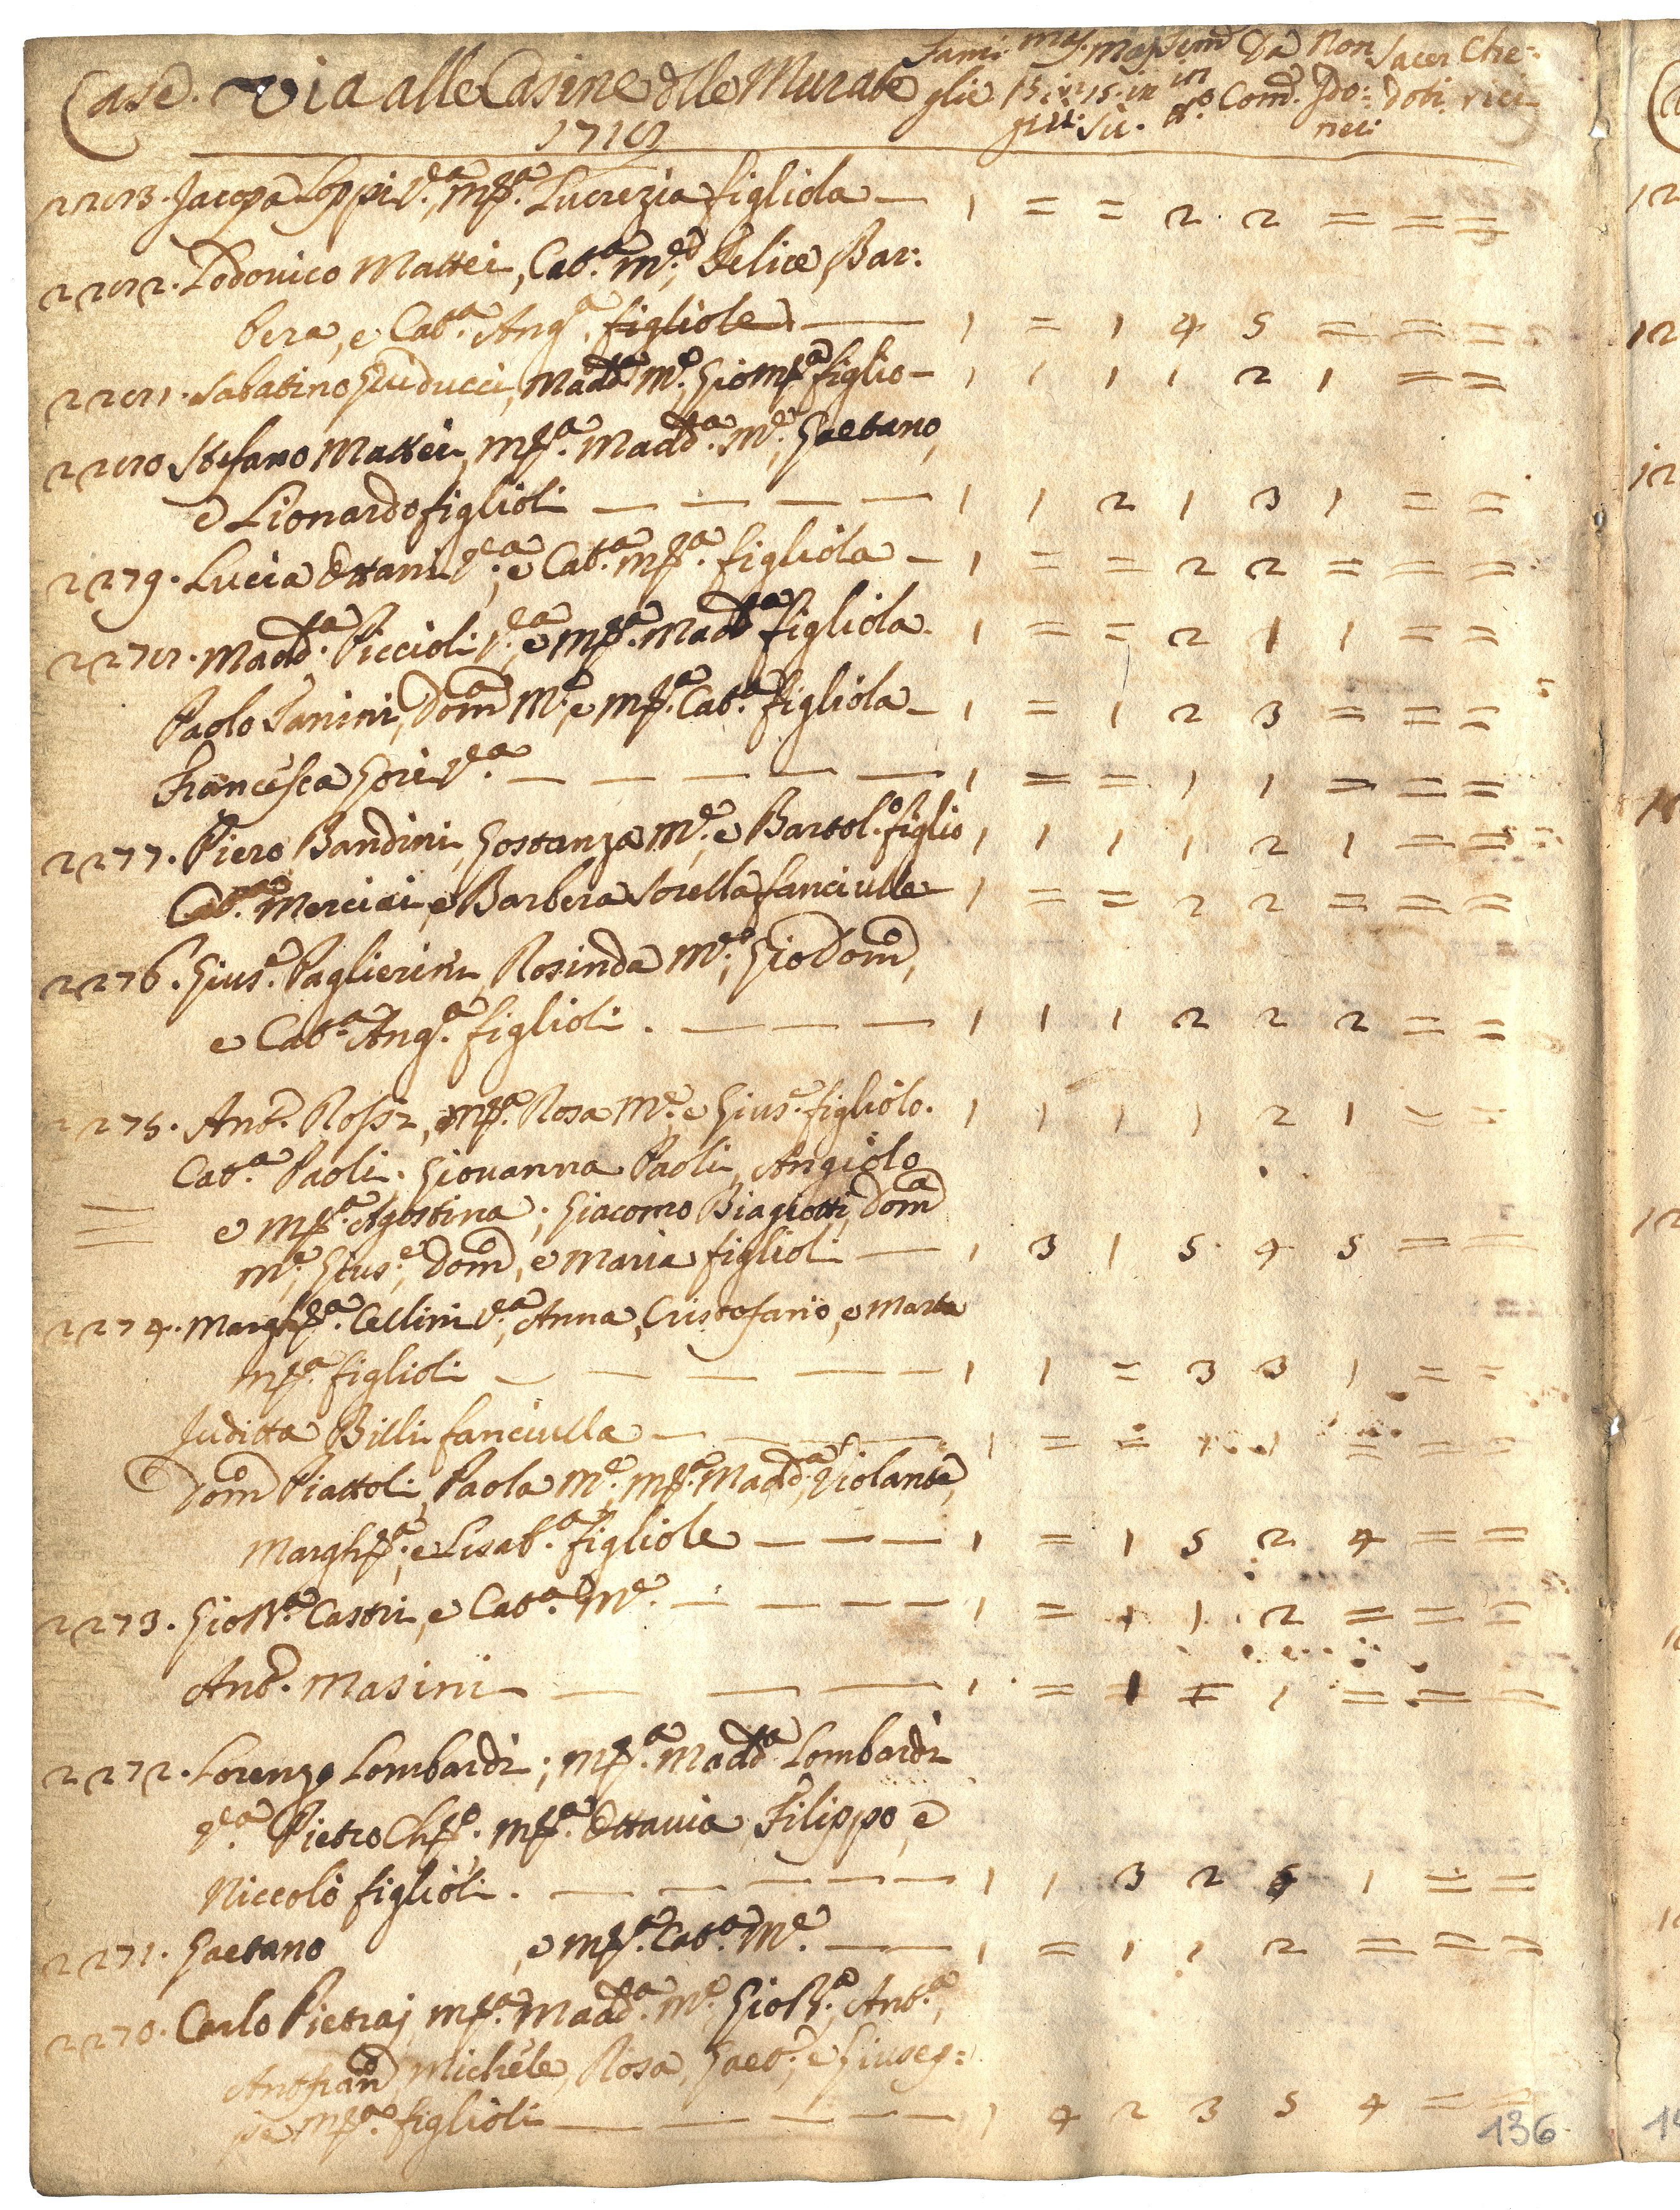 Case. Via alle Casine dlle Murate
Fami: mas. mas. Fem. Da Non Sacer Che:
glie 15. in 15. in in Com. Ido: doti rici
giù. sù. nei
1718
2283. Jacopa Loppi V.ª, Mª. Lucrezia figliola — 1 = = 2 2 = = =
2282. Lodovico Mattei, Cat.ª M.e, Felice, Bar:
bera, e Cat.ª Ang.ª figliole — 1 = 1 4 5 = = =
2281. Sabatino Guiducci, Madd.ª M.e, Gio Mª figlio — 1 1 1 1 2 1 = =
2280 Stefano Mattei, Mª. Madd.ª M.e, Gaetano,
e Lionardo figlioli — — — — 1 1 2 1 3 1 = =
2279. Lucia Ottani V.ª, e Cat.ª Mª. figliola — 1 = = 2 2 = = =
2278. Madd.ª Piccioli V.ª, e Mª. Madd.ª figliola. 1 = = 2 1 1 = =
Paolo Tanini, Dom.ª M.e, e Mª. Cat.ª figliola — 1 = 1 2 3 = = =
Francesca Gori V.ª — — — — — 1 = = 1 1 = = =
2277. Piero Bandini, Gostanza M.e, e Bartol.o figlio 1 1 1 1 2 1 = =
Cat.ª Merciai, e Barbera Sorella fanciulle — 1 = = 2 2 = = =
2276. Gius.e Paglierini, Rosinda M.e, Gio Dom.o,
e Cat.ª Ang.ª figlioli. — — — 1 1 1 2 2 2 = =
2275. Ant.o Rossi, Mª. Rosa M.e, e Gius.e figliolo. 1 1 1 1 2 1 = =
Cat.ª Paoli. Giovanna Paoli, Angiolo
= e Mª. Agostina; Giacomo Biagiotti, Dom.ª
M.e, Gius.e, Dom.o, e Maria figlioli — 1 3 1 5 4 5 = =
2274. Margh.ª Cellini V.ª, Anna, Cristofano, e Marta
Mª. figlioli — — — — — 1 1 = 3 3 1 = =
Juditta Billi fanciulla — — 1 = = 1 1 = = =
Dom.o Piattoli, Paola M.e, Mª. Madd.ª, Violante,
Margh.ª, e Lisab.ª figliole — — — 1 = 1 5 2 4 = =
2273. Gio Bª. Castri, e Cat.ª M.e. — — — — 1 = 1 1 2 = = =
Ant.o Masini — — — 1 = 1 = 1 = = =
2272. Lorenzo Lombardi; Mª. Madd.ª Lombardi
V.ª Pietro Ch.o. Mª. Ottavia, Filippo, e
Niccolò figlioli. — — — — — 1 1 3 2 5 1 = =
2271. Gaetano , e Mª. Cat.ª M.e. — — 1 = 1 1 2 = = =
2270. Carlo Pietraj, Mª. Madd.ª M.e, Gio Bª., Ant.ª,
Antofran.o, Michele, Rosa, Gaet.o, e Giusep:
pe Mª. figlioli — — — — — 1 4 2 3 5 4 = =
136